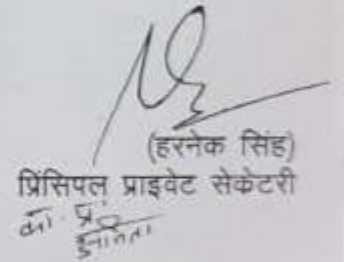 (हरनेक सिंह)
प्रिंसिपल प्राइवेट सेकेटरी
का. प्र.